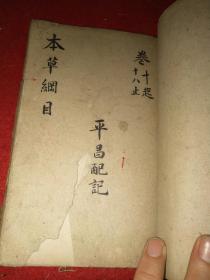 卷十起
十八止
本草綱目
平昌配記